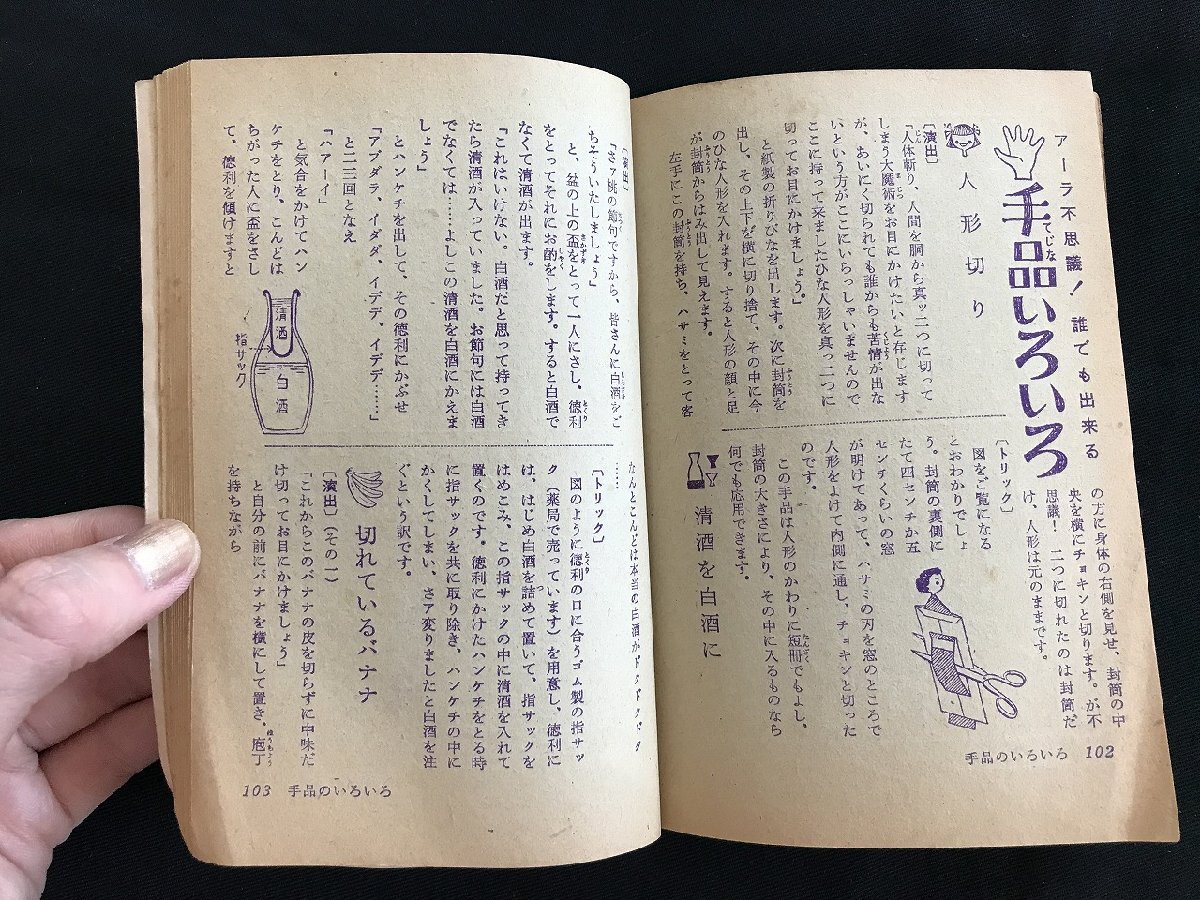 アーラ不思議！ 誰でも出来る
手品いろいろ
てじな
人形切り
〔演出〕
「人体斬り、人間を胴から真ッ二つに切って
しまう大魔術をお目にかけたいと存じます
が、あいにく切られても誰からも苦情が出な
いという方がここにいらっしゃいませんので
ここに持って来ましたひな人形を真っ二つに
切ってお目にかけましょう。」
と紙製の折りびなを出します。次に封筒を
出し、その上下を横に切り捨て、その中に今
のひな人形を入れます。すると人形の顔と足
が封筒からはみ出して見えます。
左手にこの封筒を持ち、ハサミをとって客
の方に身体の右側を見せ、封筒の中
央を横にチョキンと切ります。が不
思議！ 二つに切れたのは封筒だ
け、人形は元のままです。
〔トリック〕
図をご覧になる
とおわかりでしょ
う。封筒の裏側に
たて四センチか五
センチくらいの窓
が明けてあって、ハサミの刃を窓のところで
人形をよけて内側に通し、チョキンと切った
のです。
この手品は人形のかわりに短冊でもよし、
封筒の大きさにより、その中に入るものなら
何でも応用できます。
清酒を白酒に
手品のいろいろ 102
〔演出〕
「さァ桃の節句ですから、皆さんに白酒をご
ちそういたしましょう」
と、盆の上の盃をとって一人にさし、徳利
をとってそれにお酌をします。すると白酒で
なくて清酒が出ます。
「これはいけない。白酒だと思って持ってき
たら清酒が入っていました。お節句には白酒
でなくては……よしこの清酒を白酒にかえま
しょう」
とハンケチを出して、その徳利にかぶせ
「アブダラ、イダダ、イデデ、イデデ……」
と二三回となえ
「ハアーイ」
と気合をかけてハン
ケチをとり、こんどは
ちがった人に盃をさし
て、徳利を傾けますと
清酒
白酒
指サック
なんとこんどは本当の白酒がドクドクドク
……
〔トリック〕
図のように徳利の口に合うゴム製の指サッ
ク（薬局で売っています）を用意し、徳利に
は、はじめ白酒を詰めて置いて、指サックを
はめこみ、この指サックの中に清酒を入れて
置くのです。徳利にかけたハンケチをとる時
に指サックを共に取り除き、ハンケチの中に
かくしてしまい、さア変りましたと白酒を注
ぐという訳です。
切れているバナナ
〔演出〕（その一）
「これからこのバナナの皮を切らずに中味だ
け切ってお目にかけましょう」
と自分の前にバナナを横にして置き、庖丁
を持ちながら
103 手品のいろいろ